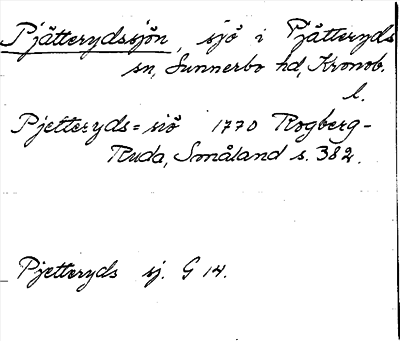 Pjätterydssjön, sjö i Pjätteryds
sn, Sunnerbo hd, Kronob.
l.
Pjetteryds=siö 1770 Rogberg-
Ruda, Småland s. 382.
Pjetteryds sj. G 14.